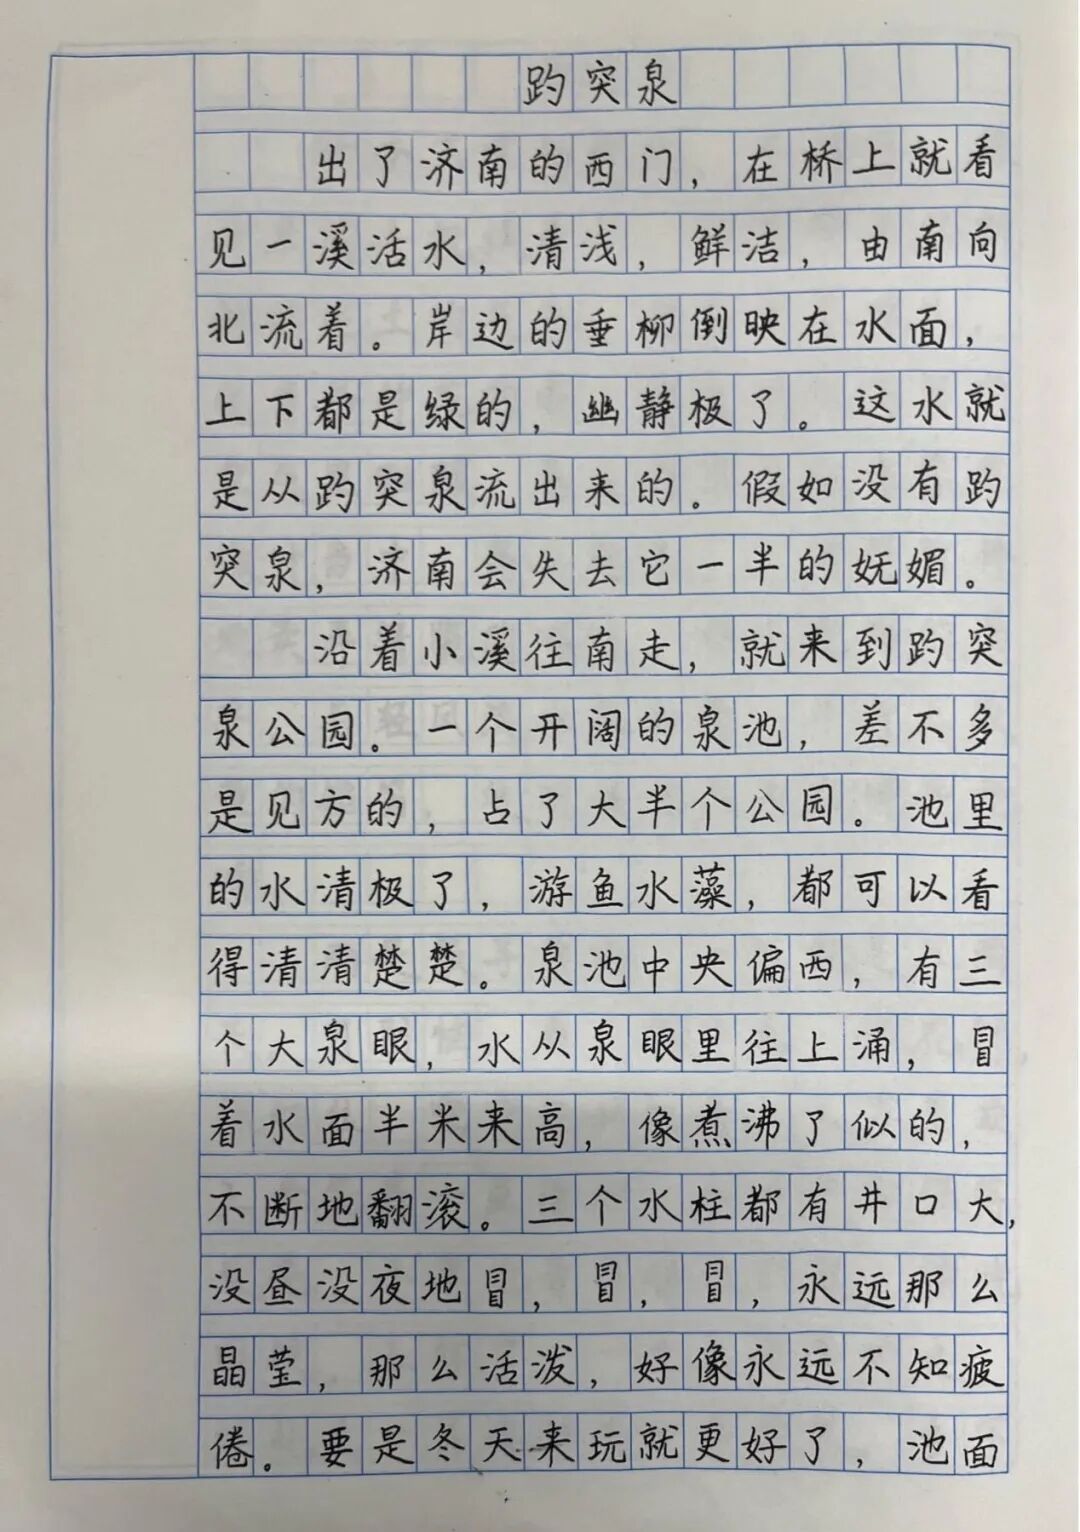 趵突泉
出了济南的西门，在桥上就看
见一溪活水，清浅，鲜洁，由南向
北流着。岸边的垂柳倒映在水面，
上下都是绿的，幽静极了。这水就
是从趵突泉流出来的。假如没有趵
突泉，济南会失去它一半的妩媚。
沿着小溪往南走，就来到趵突
泉公园。一个开阔的泉池，差不多
是见方的，占了大半个公园。池里
的水清极了，游鱼水藻，都可以看
得清清楚楚。泉池中央偏西，有三
个大泉眼，水从泉眼里往上涌，冒
着水面半米来高，像煮沸了似的，
不断地翻滚。三个水柱都有井口大，
没昼没夜地冒，冒，冒，永远那么
晶莹，那么活泼，好像永远不知疲
倦。要是冬天来玩就更好了，池面